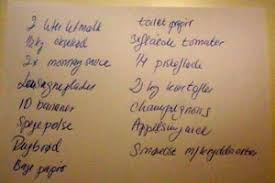 2 liter letmælk
½ kg oksekød
2x mornay sauce
Lasagneplader
10 bananer
Spegepølse
Rugbrød
Bage papir
toilet papir
3 flåede tomater
1/4 piskefløde
2 kg kartofler
Champignons
Appelsinjuice
Smøreost m/krydderurter